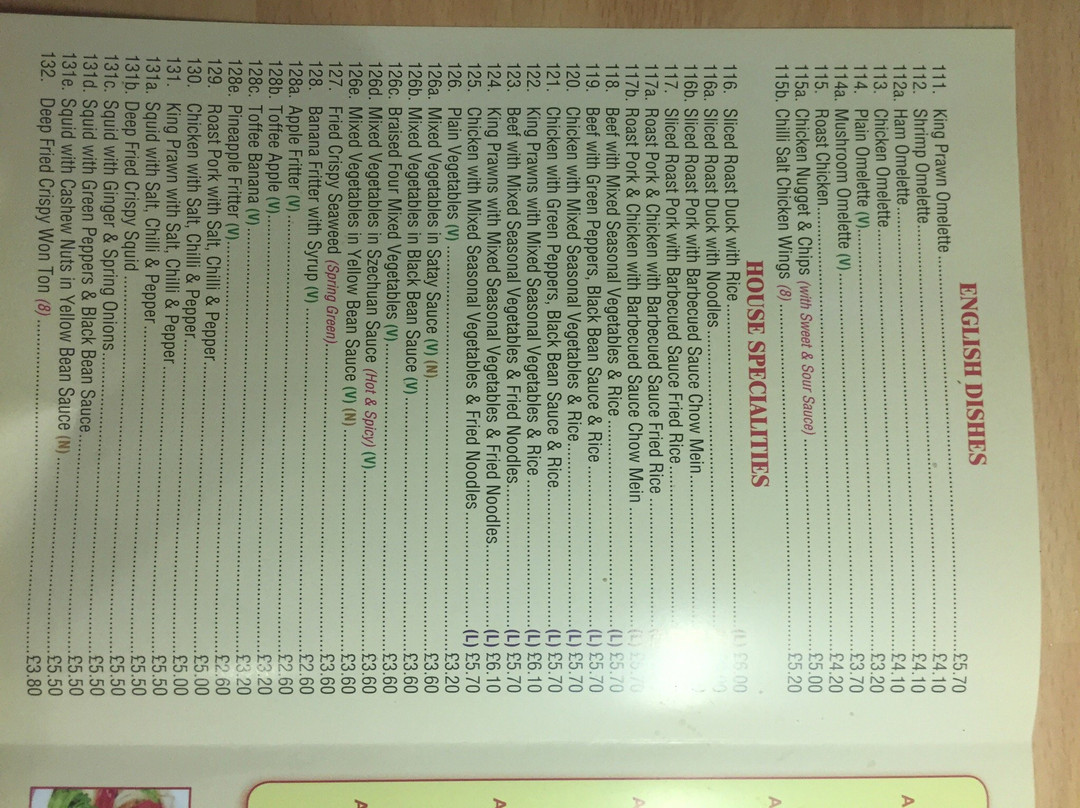 ENGLISH DISHES
111. King Prawn Omelette £5.70
112. Shrimp Omelette £4.10
112a. Ham Omelette £4.10
113. Chicken Omelette £4.10
114. Plain Omelette (V) £3.20
114a. Mushroom Omelette (V) £3.70
115. Roast Chicken £4.20
115a. Chicken Nugget & Chips (with Sweet & Sour Sauce) £5.00
115b. Chilli Salt Chicken Wings (8) £5.20
HOUSE SPECIALITIES
116. Sliced Roast Duck with Rice (L) £6.00
116a. Sliced Roast Duck with Noodles
116b. Sliced Roast Pork with Barbecued Sauce Chow Mein
117. Sliced Roast Pork with Barbecued Sauce Fried Rice
117a. Roast Pork & Chicken with Barbecued Sauce Fried Rice
117b. Roast Pork & Chicken with Barbecued Sauce Chow Mein (L) £5.70
118. Beef with Mixed Seasonal Vegetables & Rice (L) £5.70
119. Beef with Green Peppers, Black Bean Sauce & Rice (L) £5.70
120. Chicken with Mixed Seasonal Vegetables & Rice (L) £5.70
121. Chicken with Green Peppers, Black Bean Sauce & Rice (L) £5.70
122. King Prawns with Mixed Seasonal Vegetables & Rice (L) £6.10
123. Beef with Mixed Seasonal Vegetables & Fried Noodles (L) £5.70
124. King Prawns with Mixed Seasonal Vegetables & Fried Noodles (L) £6.10
125. Chicken with Mixed Seasonal Vegetables & Fried Noodles (L) £5.70
126. Plain Vegetables (V) £3.20
126a. Mixed Vegetables in Satay Sauce (V) (N) £3.60
126b. Mixed Vegetables in Black Bean Sauce (V) £3.60
126c. Braised Four Mixed Vegetables (V) £3.60
126d. Mixed Vegetables in Szechuan Sauce (Hot & Spicy) (V) £3.60
126e. Mixed Vegetables in Yellow Bean Sauce (V) (N) £3.60
127. Fried Crispy Seaweed (Spring Green) £3.60
128. Banana Fritter with Syrup (V) £2.60
128a. Apple Fritter (V) £2.60
128b. Toffee Apple (V) £3.20
128c. Toffee Banana (V) £3.20
128e. Pineapple Fritter (V) £2.60
129. Roast Pork with Salt, Chilli & Pepper £5.00
130. Chicken with Salt, Chilli & Pepper £5.00
131. King Prawn with Salt, Chilli & Pepper £5.50
131a. Squid with Salt, Chilli & Pepper £5.50
131b. Deep Fried Crispy Squid £5.50
131c. Squid with Ginger & Spring Onions £5.50
131d. Squid with Green Peppers & Black Bean Sauce £5.50
131e. Squid with Cashew Nuts in Yellow Bean Sauce (N) £5.50
132. Deep Fried Crispy Won Ton (8) £5.80
A
A
A
A
A